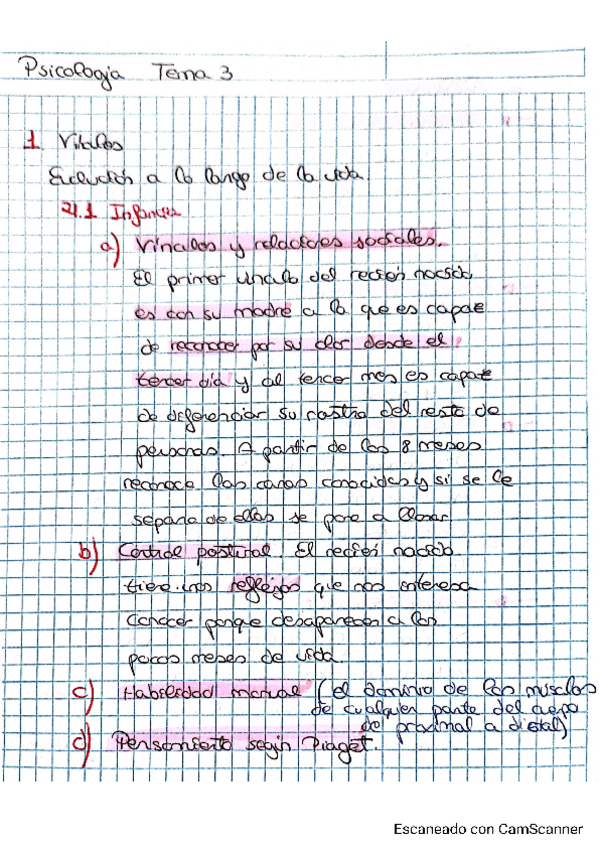 Psicología Tema 3
1. Vitales
Evolución a lo largo de la vida.
1.1 Infancia
a) Vínculos y relaciones sociales.
El primer vínculo del recién nacido
es con su madre a la que es capaz
de reconocer por su olor desde el
tercer día y al tercer mes es capaz
de diferenciar su rostro del resto de
personas. A partir de los 8 meses
reconoce las caras conocidas y si se le
separa de ellas se pone a llorar
b) Control postural. El recién nacido
tiene unos reflejos que nos interesa
conocer porque desaparecen a los
pocos meses de vida.
c) Habilidad manual (el dominio de los músculos
de cualquier parte del cuerpo
de proximal a distal)
d) Pensamiento según Piaget.
Escaneado con CamScanner